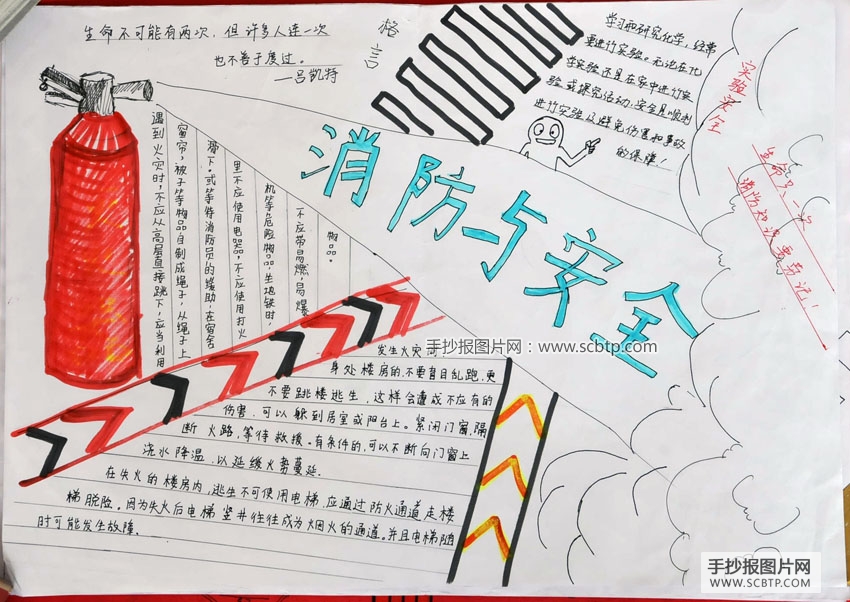 生命不可能有两次，但许多人连一次
也不善于度过。
—吕凯特
格言
学习和研究化学，经常
要进行实验。无论在化
学实验还是在家中进行实
验或探究活动，安全是顺利
进行实验及避免伤害和事故
的保障！
实验安全
生命只一次
消防知识要劳记！
消防与安全
遇到火灾时，不应从高层直接跳下，应当利用
窗帘，被子等物品自制成绳子，从绳子上
滑下。或等待消防员的缓助，在宿舍
里不应使用电器，不应使用打火
机等危险物品，坐地铁时，
不应带易燃，易爆
物品。
发生火灾
身处楼房的，不要盲目乱跑，更
不要跳楼逃生，这样会造成不应有的
伤害，可以躲到居室或阳台上。紧闭门窗，隔
断火路，等待救援。有条件的，可以不断向门窗上
浇水降温，以延缓火势蔓延.
在失火的楼房内，逃生不可使用电梯，应通过防火通道走楼
梯脱险。因为失火后电梯竖井往往成为烟火的通道。并且电梯随
时可能发生故障.
手抄报图片网：www.scbtp.com
手抄报图片网
WWW.SCBTP.COM